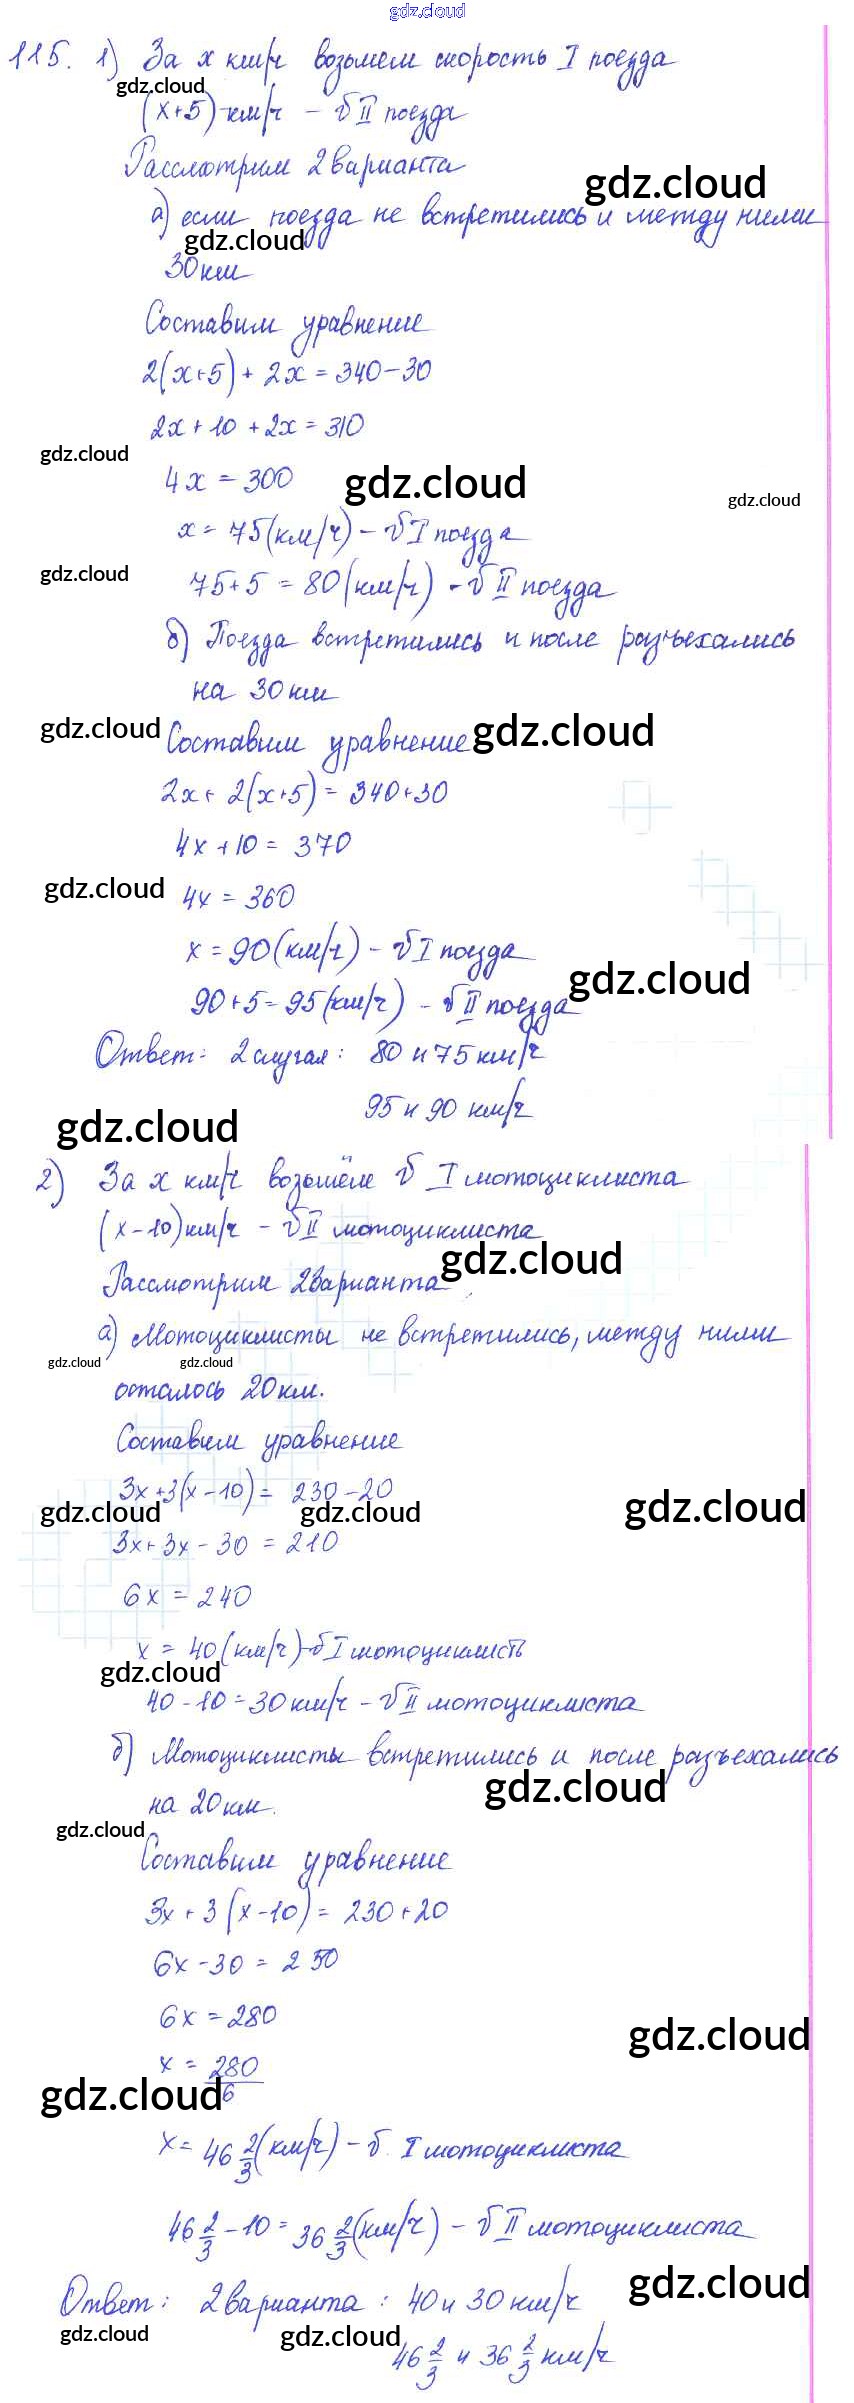 gdz.cloud
115. 1) За x км/ч возьмем скорость I поезда
gdz.cloud
(x+5) км/ч - v II поезда
Рассмотрим 2 варианта
gdz.cloud
а) если поезда не встретились и между ними
gdz.cloud
30 км
Составим уравнение
2(x+5) + 2x = 340-30
2x + 10 + 2x = 310
gdz.cloud
4x = 300
gdz.cloud
gdz.cloud
x = 75 (км/ч) - v I поезда
gdz.cloud
75+5 = 80 (км/ч) - v II поезда
б) Поезда встретились и после разъехались
на 30 км
gdz.cloud
Составим уравнение
gdz.cloud
2x + 2(x+5) = 340+30
4x + 10 = 370
gdz.cloud
4x = 360
x = 90 (км/ч) - v I поезда
gdz.cloud
90+5 = 95 (км/ч) - v II поезда
Ответ: 2 случая: 80 и 75 км/ч
95 и 90 км/ч
gdz.cloud
2) За x км/ч возьмём v I мотоциклиста
(x-10) км/ч - v II мотоциклиста
gdz.cloud
Рассмотрим 2 варианта
а) Мотоциклисты не встретились, между ними
gdz.cloud
gdz.cloud
осталось 20 км.
Составим уравнение
3x+3(x-10) = 230-20
gdz.cloud
gdz.cloud
gdz.cloud
3x+3x-30 = 210
6x = 240
x = 40 (км/ч) - v I мотоциклистъ
gdz.cloud
40-10 = 30 км/ч - v II мотоциклиста
б) Мотоциклисты встретились и после разъехались
gdz.cloud
на 20 км.
gdz.cloud
Составим уравнение
3x + 3(x-10) = 230+20
6x-30 = 250
6x = 280
gdz.cloud
x = 280/6
gdz.cloud
x = 46 2/3 (км/ч) - v I мотоциклиста
46 2/3 - 10 = 36 2/3 (км/ч) - v II мотоциклиста
gdz.cloud
Ответ: 2 варианта: 40 и 30 км/ч
gdz.cloud
gdz.cloud
46 2/3 и 36 2/3 км/ч